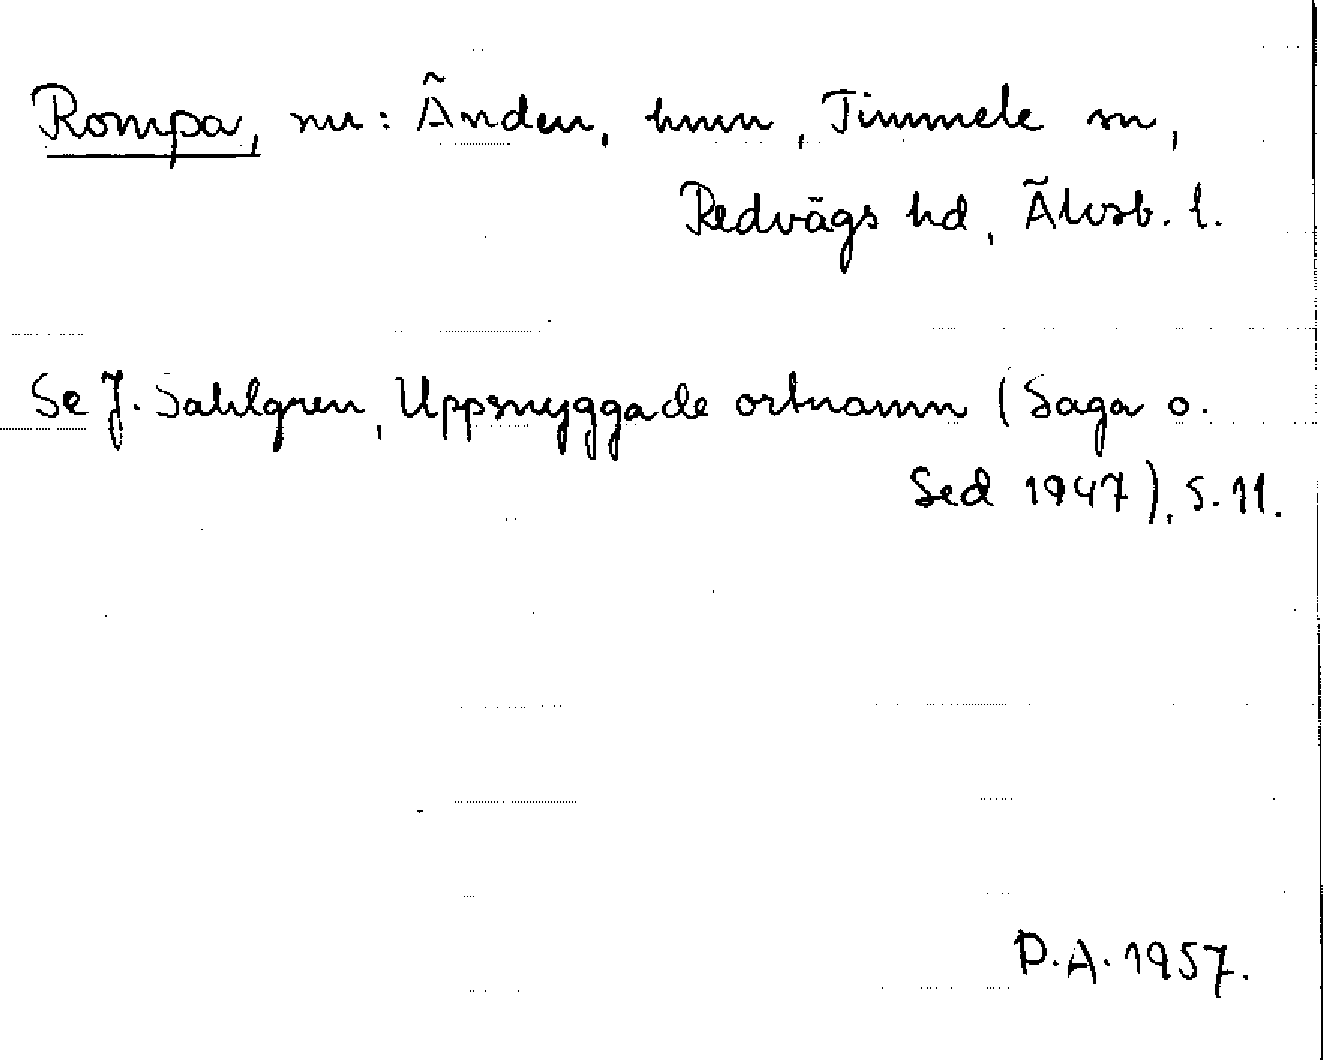 Rompa, nu: Änden, hmn, Timmele sn,
Redvägs hd, Älvsb. l.
Se J. Sahlgren, Uppsnyggade ortnamn (Saga o.
Sed 1947), s. 11.
P.A. 1957.